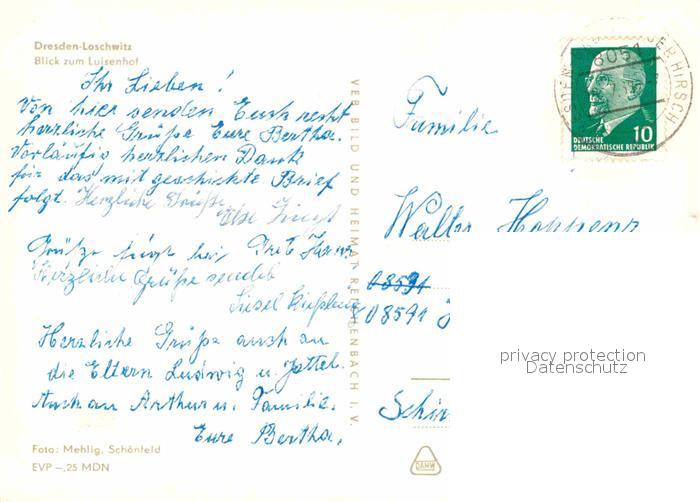 Dresden-Loschwitz
Blick zum Luisenhof
Ihr Lieben!
Von hier senden Euch recht
herzliche Grüße Eure Bertha.
Vorläufig herzlichen Dank
für das mit geschickte Brief
folgt. Herzliche Grüße
Else
Grüße
Herzliche Grüße sendet
Liesel
Herzliche Grüße auch an
die Eltern Ludwig u.
Auch an Arthur u. Familie.
Eure Bertha.
Foto: Mehlig, Schönfeld
EVP –,25 MDN
VEB BILD UND HEIMAT REICHENBACH I. V.
8051
HIRSCH
10
DEUTSCHE
DEMOKRATISCHE REPUBLIK
Familie
Walter
08591
08591
privacy protection
Datenschutz
DAMW